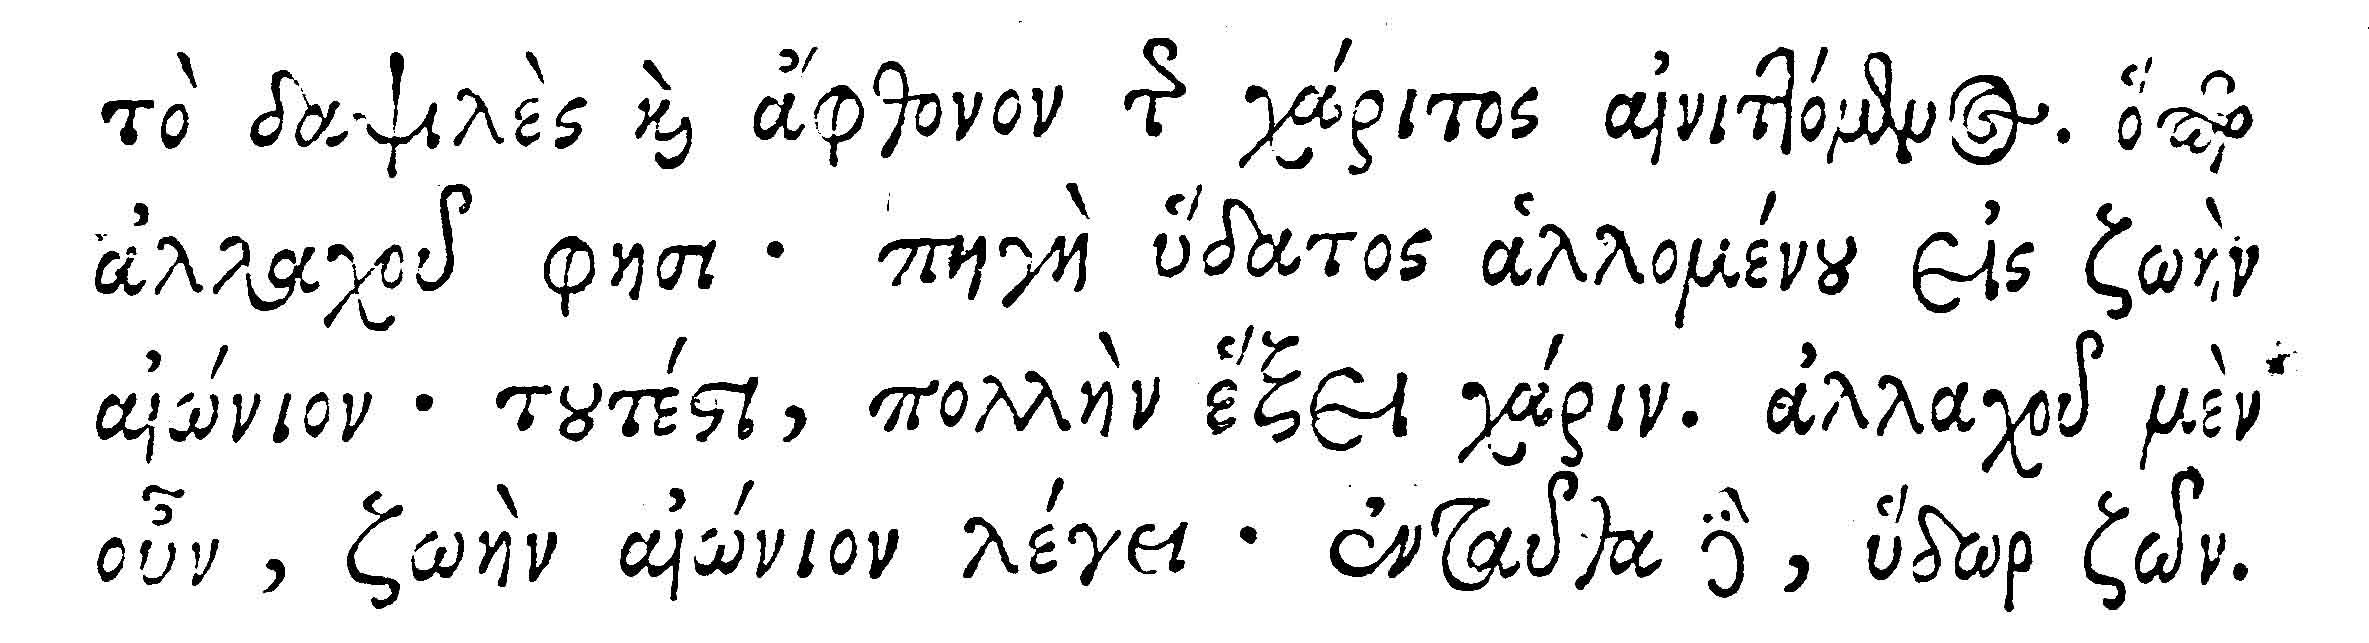 τὸ δαψιλὲς καὶ ἄφθονον τῆς χάριτος αἰνιττόμενος. ὅπερ
ἀλλαχοῦ φησι · πηγὴ ὕδατος ἁλλομένου εἰς ζωὴν
αἰώνιον · τουτέστι, πολλὴν ἕξει χάριν. ἀλλαχοῦ μὲν
οὖν, ζωὴν αἰώνιον λέγει · ἐνταῦθα δὲ, ὕδωρ ζῶν.